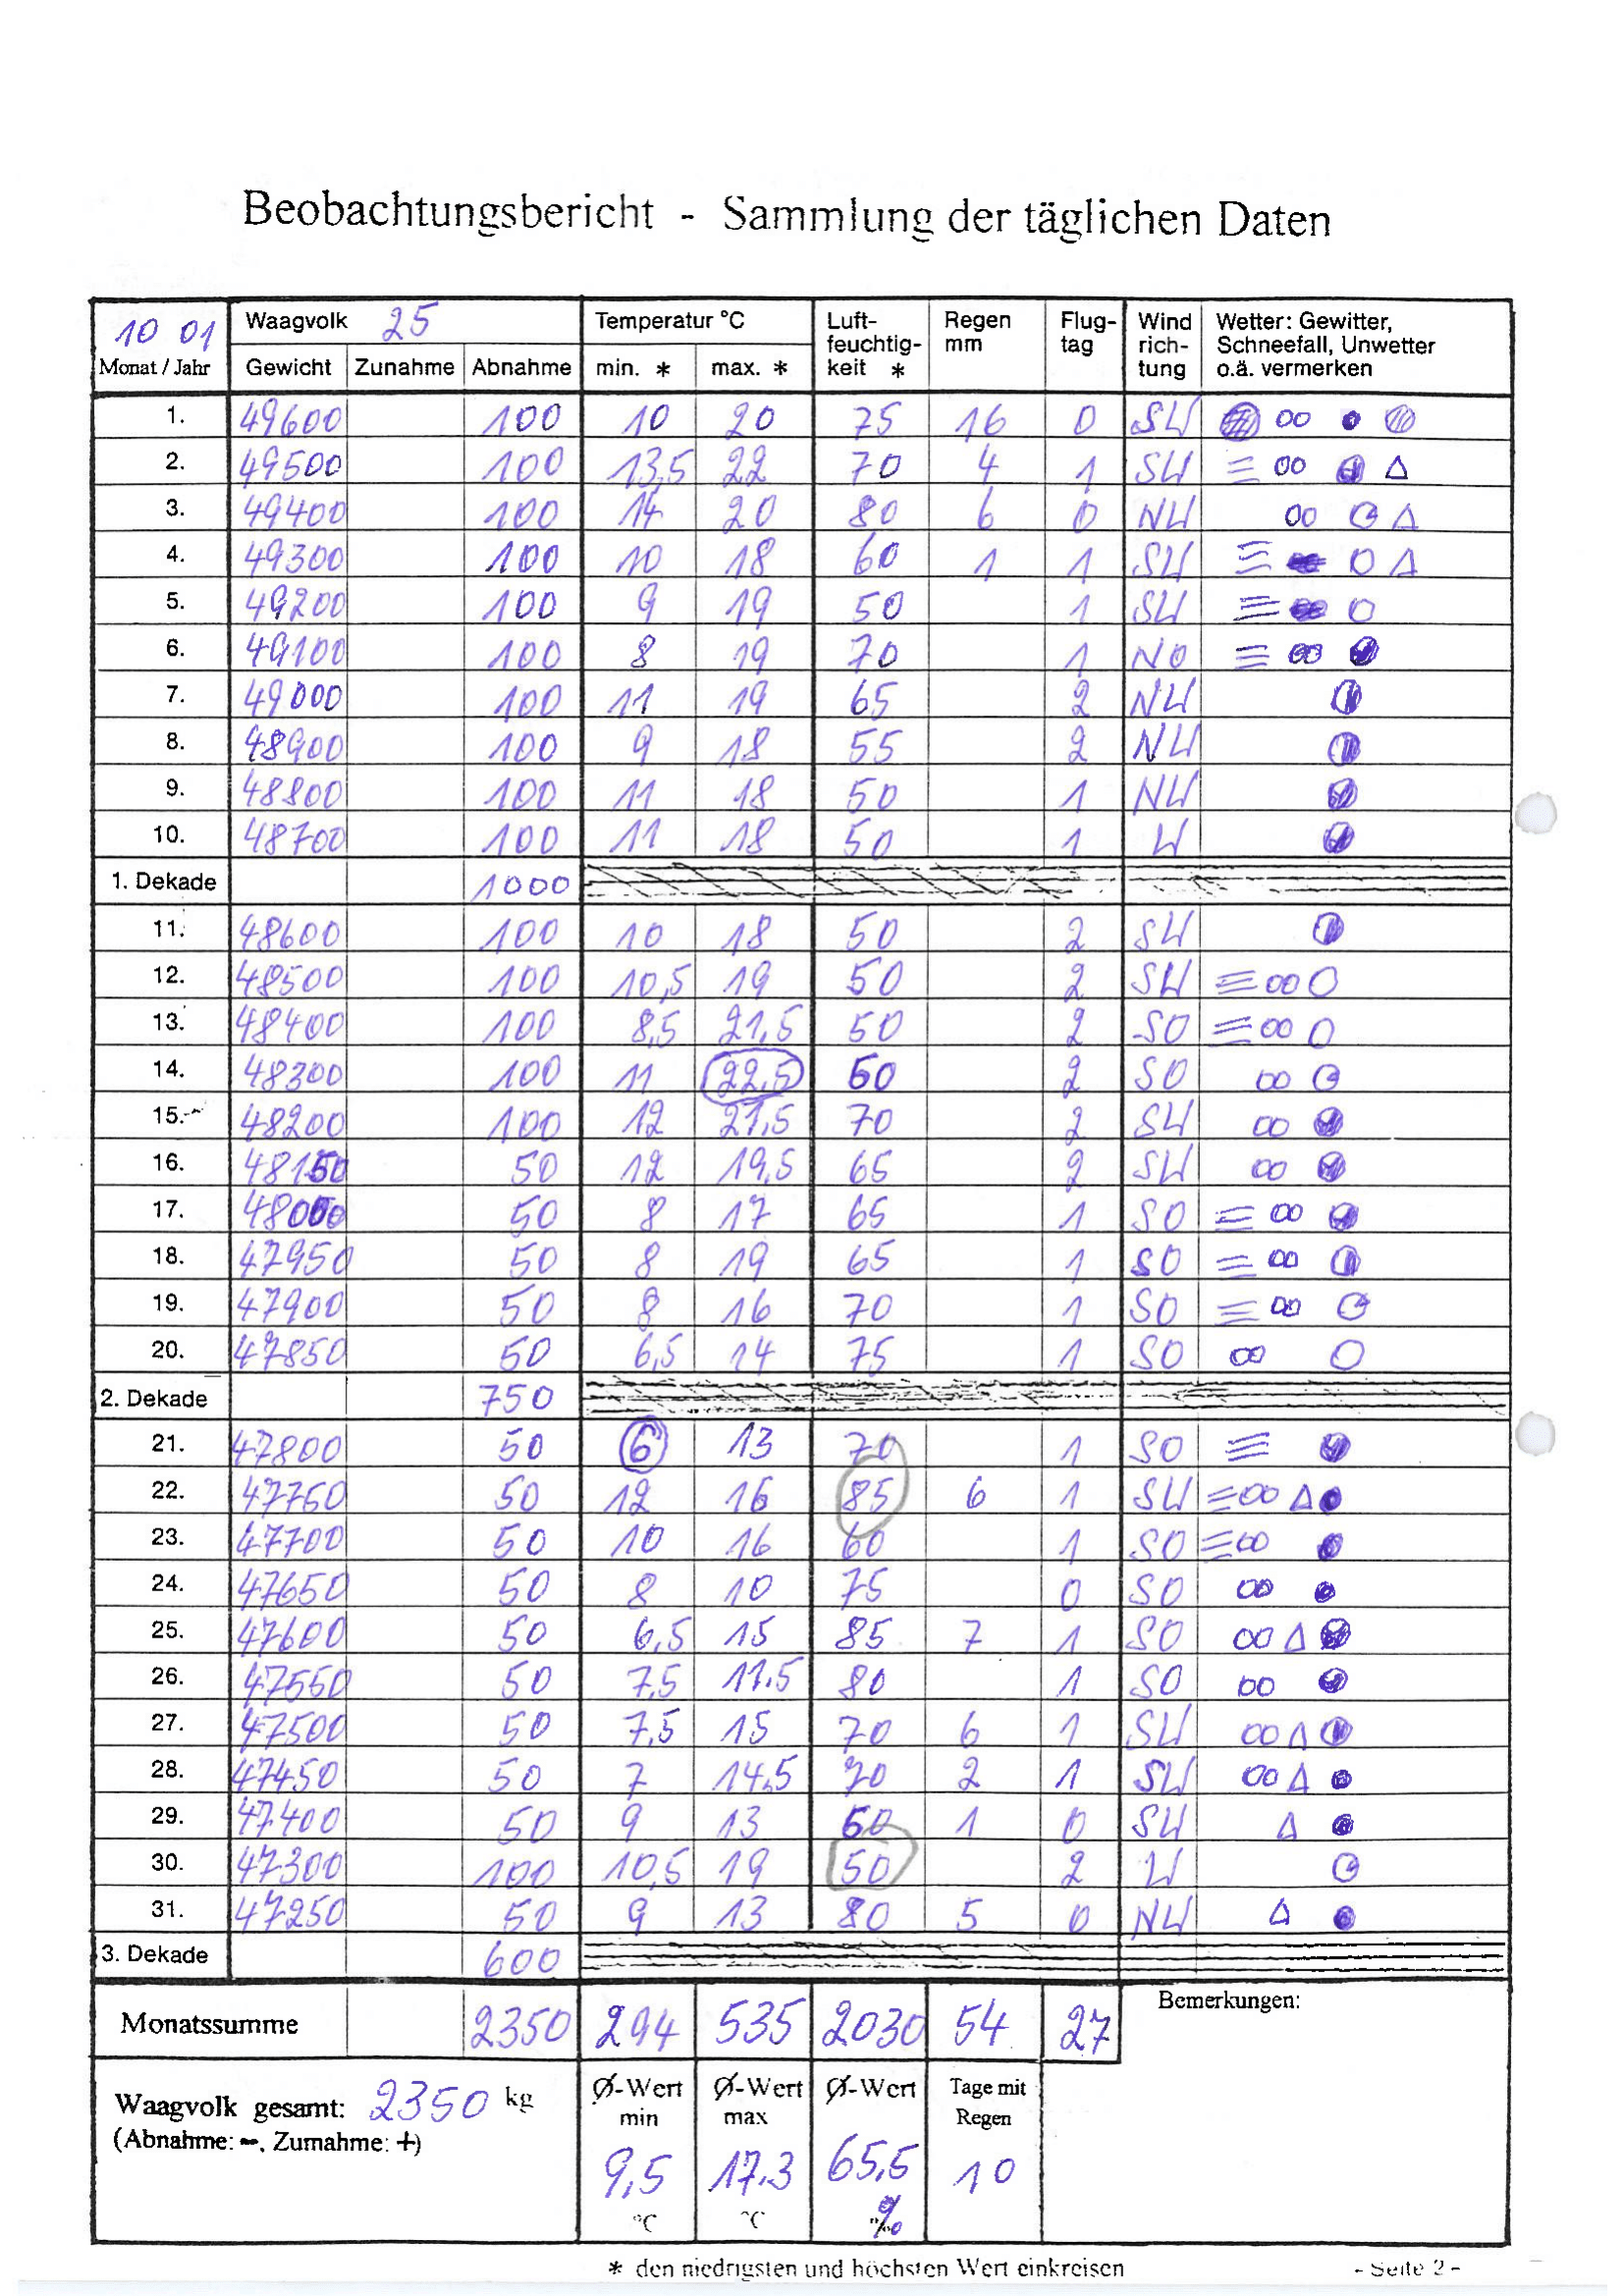 Beobachtungsbericht - Sammlung der täglichen Daten
10 01 Waagvolk 25 Temperatur °C Luft- Regen Flug- Wind Wetter: Gewitter,
feuchtig- mm tag rich- Schneefall, Unwetter
Monat / Jahr Gewicht Zunahme Abnahme min. * max. * keit * tung o.ä. vermerken
1. 49600 100 10 20 75 16 0 SW
2. 49500 100 13,5 22 70 4 1 SW
3. 49400 100 14 20 80 6 0 NW
4. 49300 100 10 18 60 1 1 SW
5. 49200 100 9 19 50 1 SW
6. 49100 100 8 19 70 1 NO
7. 49000 100 11 19 65 2 NW
8. 48900 100 9 18 55 2 NW
9. 48800 100 11 18 50 1 NW
10. 48700 100 11 18 50 1 W
1. Dekade 1000
11. 48600 100 10 18 50 2 SW
12. 48500 100 10,5 19 50 2 SW
13. 48400 100 8,5 21,5 50 2 SO
14. 48300 100 11 22,5 60 2 SO
15. 48200 100 12 21,5 70 2 SW
16. 48150 50 12 19,5 65 2 SW
17. 48000 50 8 17 65 1 SO
18. 47950 50 8 19 65 1 SO
19. 47900 50 8 16 70 1 SO
20. 47850 50 6,5 14 75 1 SO
2. Dekade 750
21. 47800 50 6 13 70 1 SO
22. 47750 50 12 16 85 6 1 SW
23. 47700 50 10 16 60 1 SO
24. 47650 50 8 10 75 0 SO
25. 47600 50 6,5 15 85 7 1 SO
26. 47550 50 7,5 11,5 80 1 SO
27. 47500 50 7,5 15 70 6 1 SW
28. 47450 50 7 14,5 70 2 1 SW
29. 47400 50 9 13 60 1 0 SW
30. 47300 100 10,5 19 50 2 W
31. 47250 50 9 13 80 5 0 NW
3. Dekade 600
Monatssumme 2350 294 535 2030 54 27 Bemerkungen:
Waagvolk gesamt: 2350 kg Ø-Wert Ø-Wert Ø-Wert Tage mit
(Abnahme: -, Zumahme: +) min max Regen
9,5 17,3 65,5 10
°C °C %
* den niedrigsten und höchsten Wert einkreisen - Seite 2 -